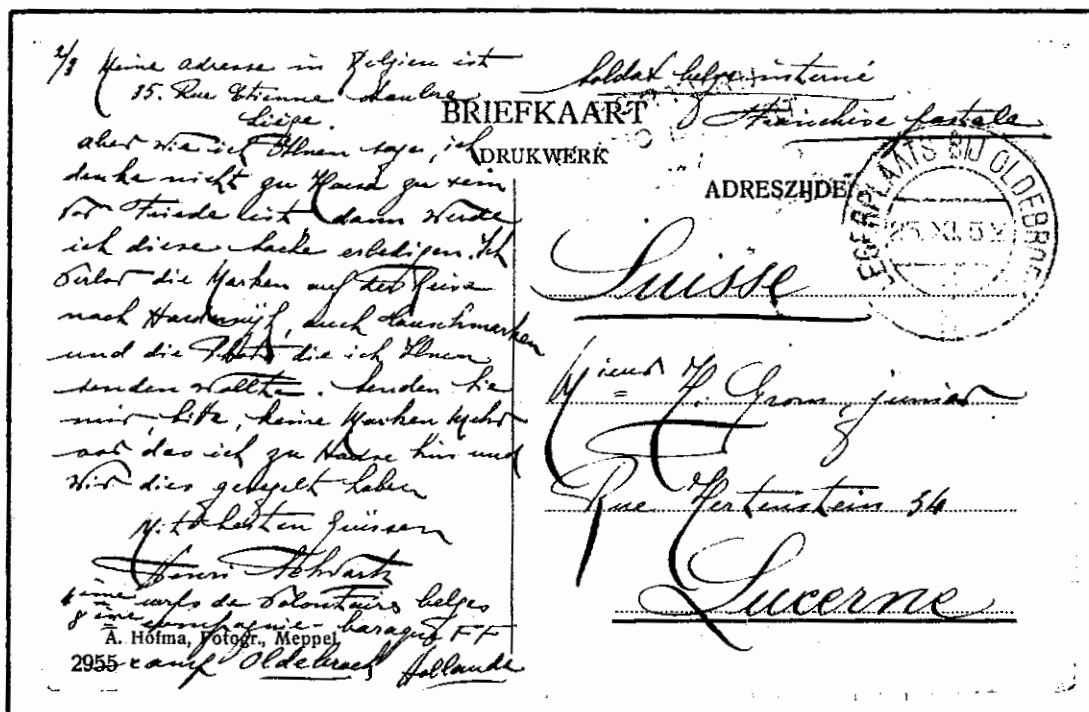 2/3 Meine adresse in Belgien ist
35. Rue Etienne
Liége.
aber wie ich Ihnen sage, ich
denke nicht zu Hause zu sein
vor Friede ist dann werde
ich diese sache erledigen. Ich
verlor die Marken auf der Reise
nach Harderwijk, auch Tauschmarken
und die Photo die ich Ihnen
senden wollte. Senden Sie
mir, bitte, keine Marken Mehr
vor das ich zu Hause bin und
wir dies geregelt haben
Mit besten Grüssen
Henri Schwartz
ième corps de Volontaires belges
8ième compagnie - baraque FF
camp Oldebroek Hollande
A. Hofma, Fotogr., Meppel
2955
Soldat belge interné
Franchise postale
BRIEFKAART
DRUKWERK
ADRESZIJDE
LEGERPLAATS BIJ OLDEBROEK
Suisse
Mr H. Grom junior
Rue Hertenstein 34
Lucerne